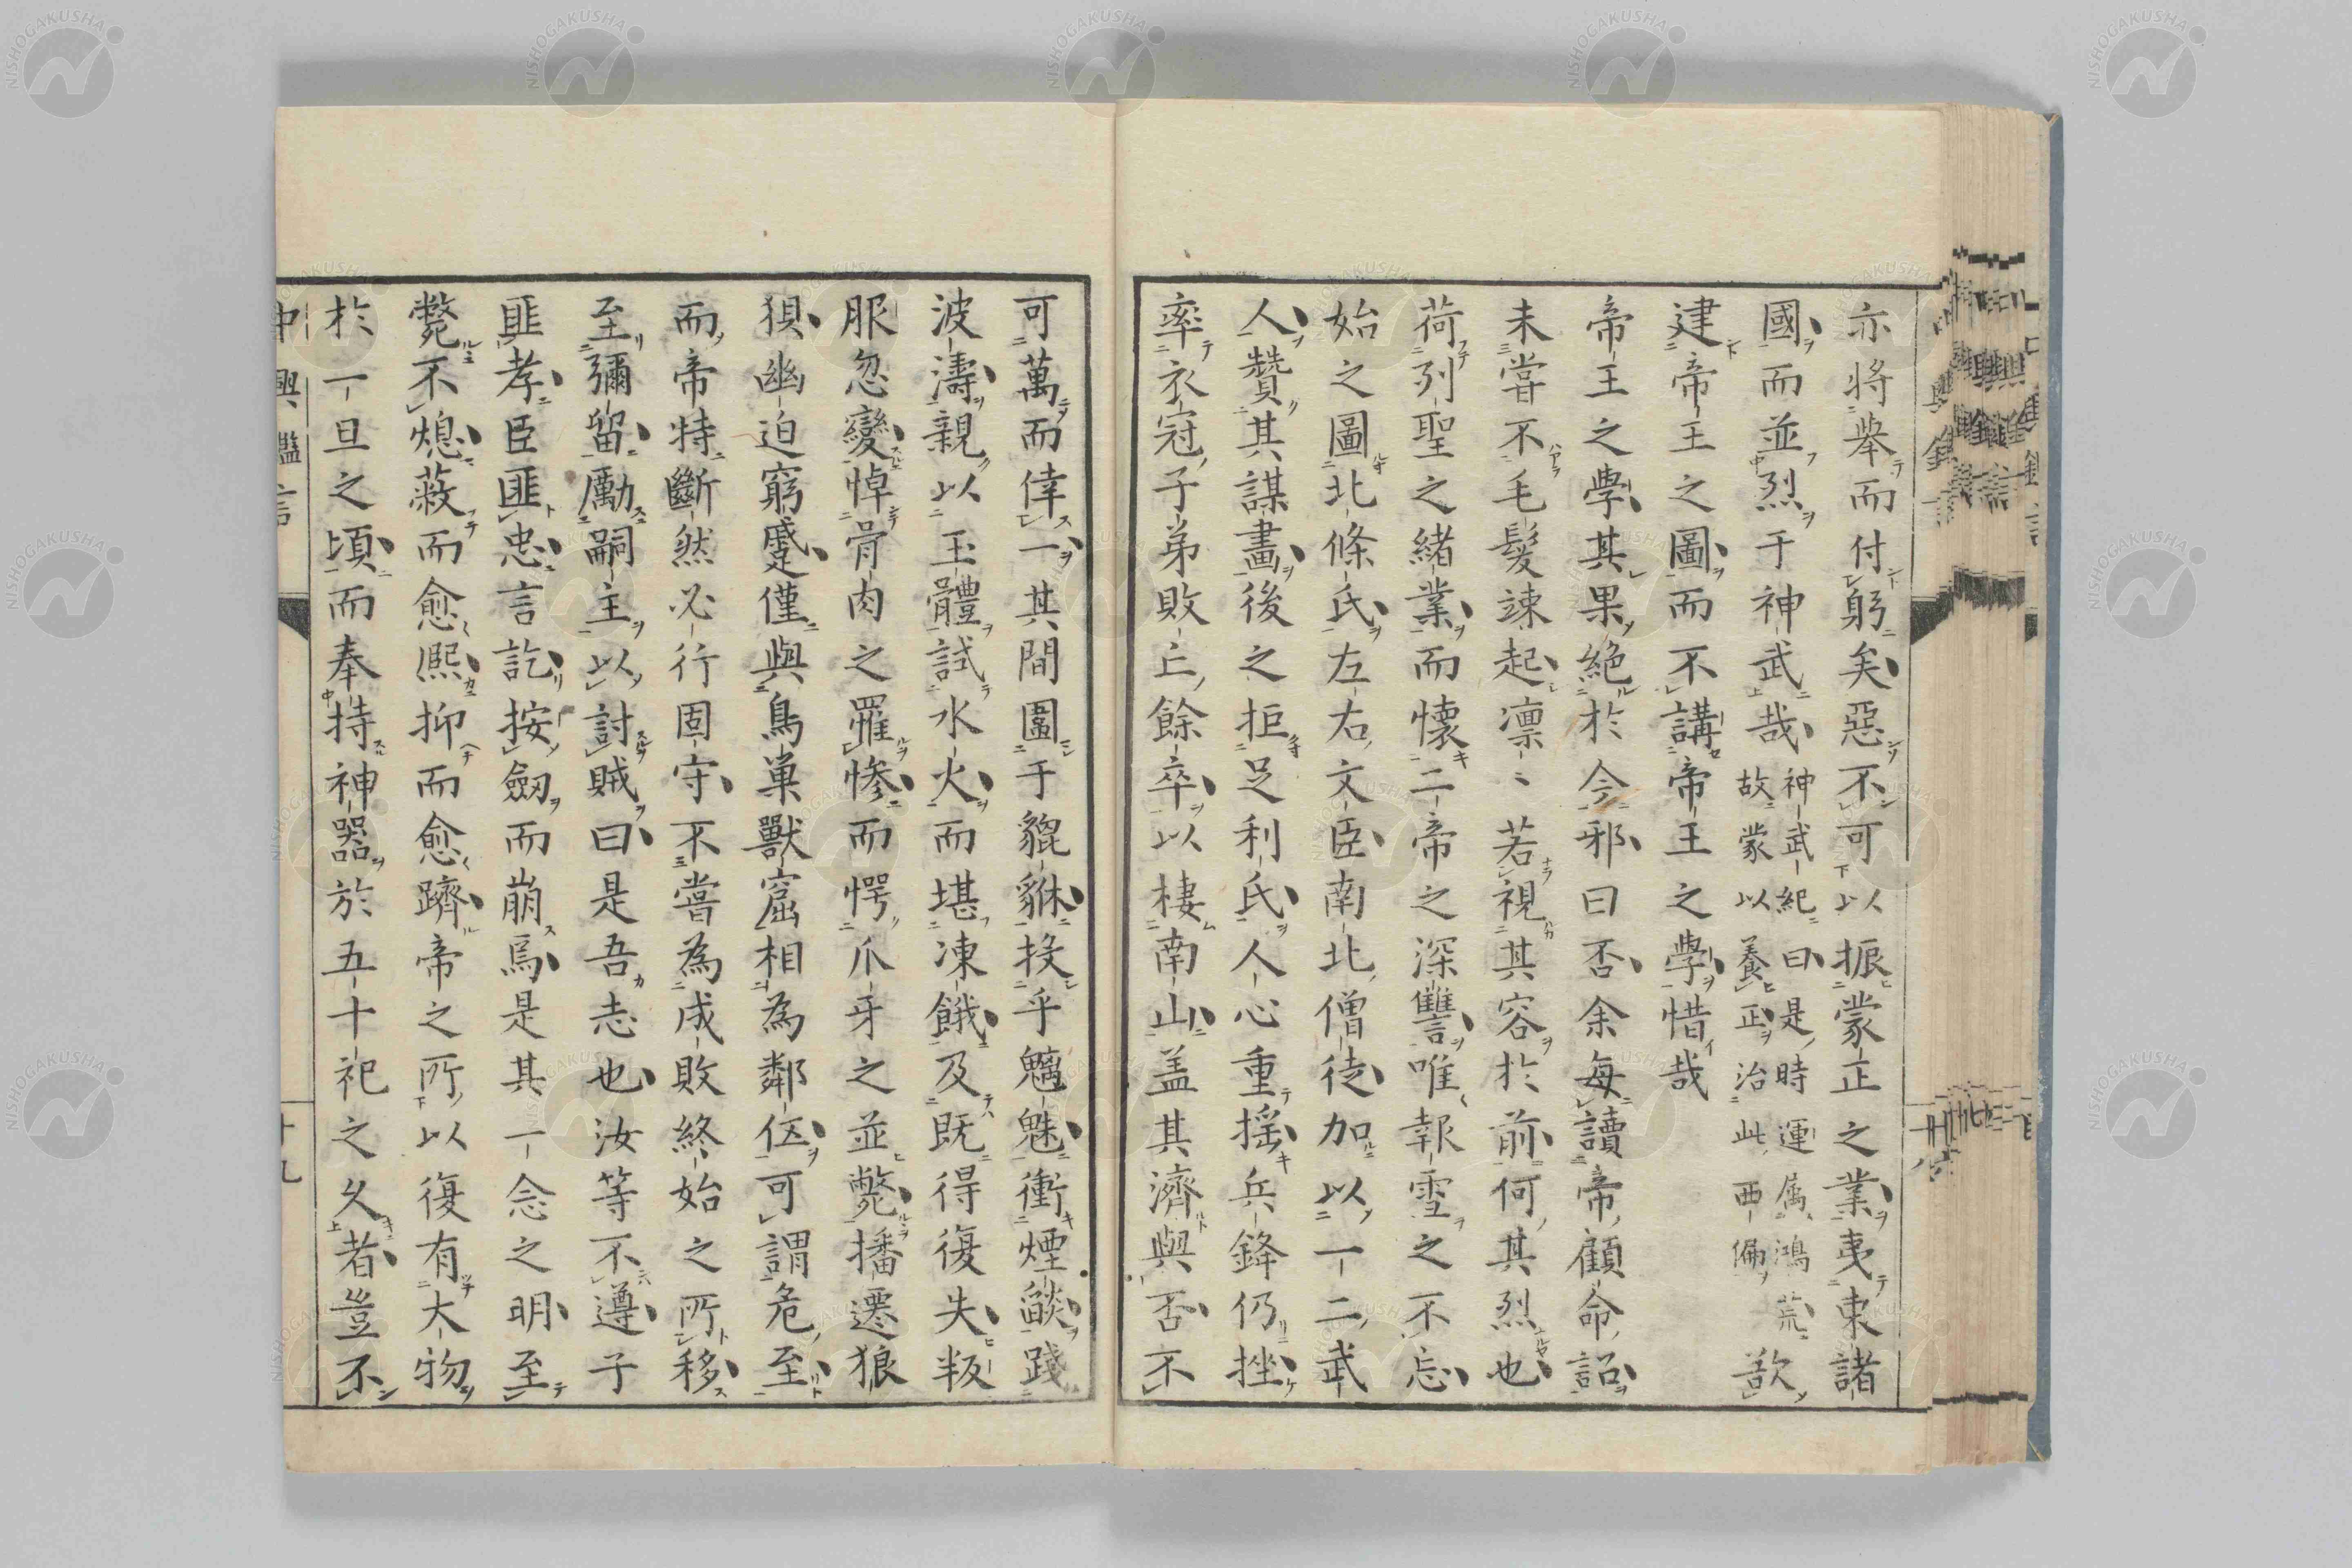 亦將擧而付躬矣惡不可以振蒙正之業夷東諸
國而並烈于神武哉神武紀曰是時運属鴻荒
故蒙以養正治此西偏歆
建帝王之圖而不講帝王之學惜哉
帝王之學其果絕於今邪曰否余每讀帝顧命詔
未嘗不毛髮竦起凛〻若視其容於前何其烈也
荷列聖之緒業而懷二帝之深讐唯報雪之不忘
始之圖北條氏左右文臣南北僧徒加以一二武
人贊其謀畫後之拒足利氏人心重搖兵鋒仍挫
率衣冠子弟敗亡餘卒以棲南山盖其濟與否不
可萬而倖一其間圍于貔貅投乎魑魅衝煙燄踐
波濤親以玉體試水火而堪凍餓及既得復失叛
服忽變悼骨肉之罹慘而愕爪牙之並斃播遷狼
狽幽迫窮蹙僅與鳥巢獸窟相為鄰伍可謂危至
而帝特斷然必行固守不嘗為成敗終始之所移
至彌留勵嗣主以討賊曰是吾志也汝等不遵子
匪孝臣匪忠言訖按劔而崩焉是其一念之明至
斃不熄蔽而愈熈抑而愈躋帝之所以復有大物
於一旦之頃而奉持神器於五十祀之久者豈不
中興鑑言
十九
NISHOGAKUSHA